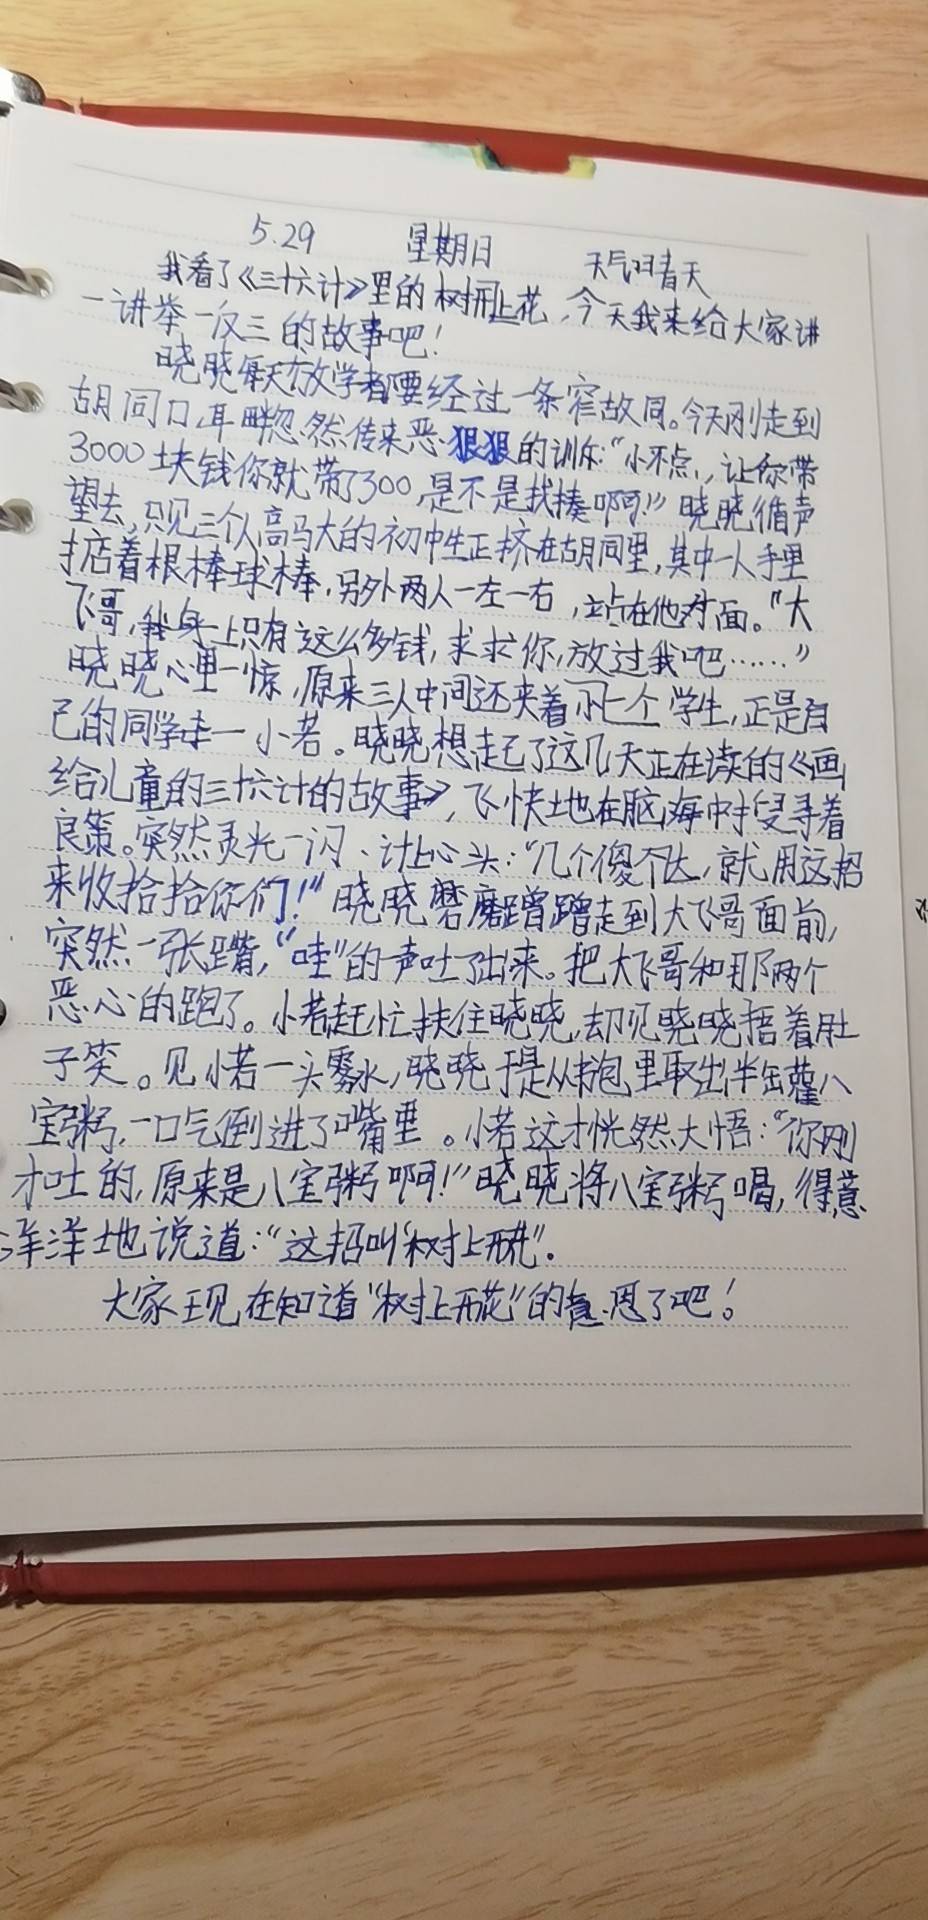 5.29 星期日 天气晴天
我看了《三十六计》里的树上开花,今天我来给大家讲
一讲举一反三的故事吧!
晓晓每天放学都要经过一条窄胡同。今天刚走到
胡同口,耳畔忽然传来恶狠狠的训斥:“小不点,让你带
3000块钱你就带了300,是不是找揍啊!”晓晓循声
望去,只见三个人高马大的初中生正挤在胡同里,其中一人手里
掂着根棒球棒,另外两人一左一右,站在他对面。“大
飞哥,我身上只有这么多钱,求求你,放过我吧……”
晓晓心里一惊,原来三人中间还夹着一个学生,正是自
己的同学小若。晓晓想起了这几天正在读的《画
给儿童的三十六计的故事》,飞快地在脑海中搜寻着
良策。突然灵光一闪、计上心头:“几个傻个达,就用这招
来收拾拾你们!”晓晓磨磨蹭蹭走到大飞哥面前,
突然一张嘴,“哇”的一声吐了出来。把大飞哥和那两个
恶心的跑了。小若赶忙扶住晓晓,却见晓晓捂着肚
子笑。见小若一头雾水,晓晓于是从书包里取出半缶罐八
宝粥,一口气倒进了嘴里。小若这才恍然大悟:“你刚
才吐的,原来是八宝粥啊!”晓晓将八宝粥喝,得意
洋洋地说道:“这招叫‘树上开花’”.
大家现在知道“树上开花”的意思了吧!